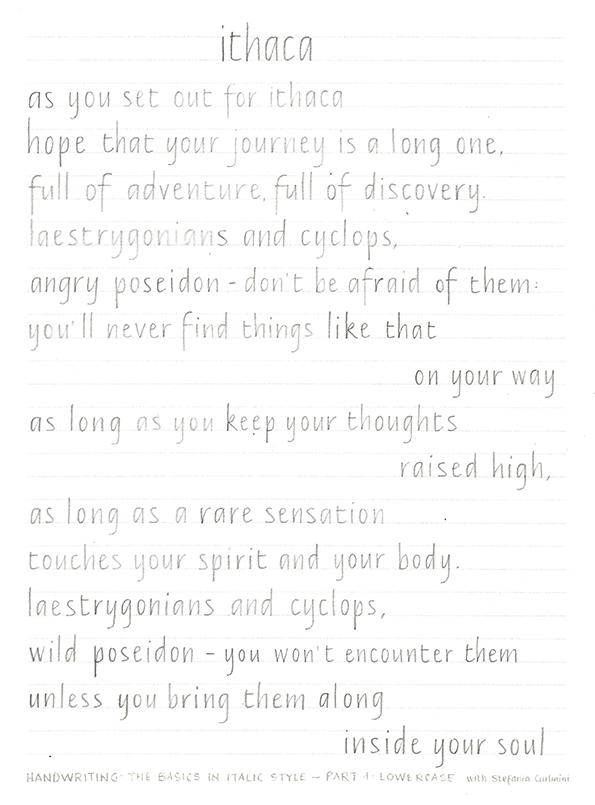 ithaca
as you set out for ithaca
hope that your journey is a long one,
full of adventure, full of discovery.
laestrygonians and cyclops,
angry poseidon – don't be afraid of them:
you'll never find things like that
on your way
as long as you keep your thoughts
raised high,
as long as a rare sensation
touches your spirit and your body.
laestrygonians and cyclops,
wild poseidon – you won't encounter them
unless you bring them along
inside your soul
HANDWRITING: THE BASICS IN ITALIC STYLE – PART 1: LOWERCASE with Stefania